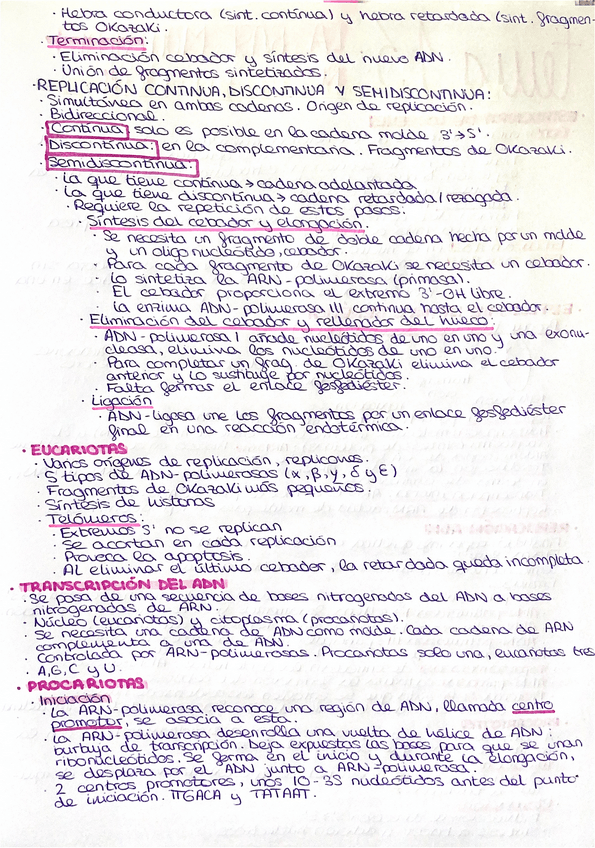 · Hebra conductora (sint. contínua) y hebra retardada (sint. fragmen-
tos Okazaki.
· Terminación:
· Eliminación cebador y síntesis del nuevo ADN.
· Unión de fragmentos sintetizados.
· REPLICACIÓN CONTINUA, DISCONTINUA Y SEMIDISCONTINUA:
· Simultánea en ambas cadenas. Origen de replicación.
· Bidireccional.
· Contínua: solo es posible en la cadena molde 3'→5'.
· Discontinua: en la complementaria. Fragmentos de Okazaki.
· Semidiscontinua:
· La que tiene contínua → cadena adelantada
· La que tiene discontínua → cadena retardada / rezagada.
· Requiere la repetición de estos pasos:
· Síntesis del cebador y elongación.
· Se necesita un fragmento de doble cadena hecha por un molde
y un oligonucleótido, cebador.
· Para cada fragmento de Okazaki se necesita un cebador.
Lo sintetiza la ARN-polimerasa (primasa).
· El cebador proporciona el extremo 3'-OH libre.
· La enzima ADN-polimerasa III continua hasta el cebador.
· Eliminación del cebador y rellenador del hueco:
· ADN-polimerasa I añade nucleótidos de uno en uno y una exonu-
cleasa, elimina los nucleótidos de uno en uno.
· Para completar un frag. de Okazaki elimina el cebador
anterior y lo sustituye por nucleótidos.
· Falta formar el enlace fosfodiéster.
· Ligación
· ADN-ligasa une los fragmentos por un enlace fosfodiéster
final en una reacción endotérmica.
· EUCARIOTAS
· Varios orígenes de replicación, replicones.
· 5 tipos de ADN-polimerasas (α, β, γ, δ y ε)
· Fragmentos de Okazaki más pequeños.
· Síntesis de histonas
· Telómeros:
· Extremos 3' no se replican
· Se acortan en cada replicación
· Provoca la apoptosis.
· Al eliminar el último cebador, la retardada queda incompleta.
· TRANSCRIPCIÓN DEL ADN
· Se pasa de una secuencia de bases nitrogenadas del ADN a bases
nitrogenadas de ARN.
· Núcleo (eucariotas) y citoplasma (procariotas).
· Se necesita una cadena de ADN como molde. Cada cadena de ARN
complementa a una de ADN.
· Controlada por ARN-polimerasas. Procariotas solo una, eucariotas tres
· A, G, C y U.
· PROCARIOTAS
· Iniciación
· La ARN-polimerasa reconoce una región de ADN, llamada centro
promotor, se asocia a esta.
· La ARN-polimerasa desenrolla una vuelta de hélice de ADN:
burbuja de transcripción. Deja expuestas las bases para que se unan
ribonucleótidos. Se forma en el inicio y durante la elongación,
se desplaza por el ADN junto a ARN-polimerasa.
· 2 centros promotores, unos 10-35 nucleótidos antes del punto
de iniciación. TTGACA y TATAAT.